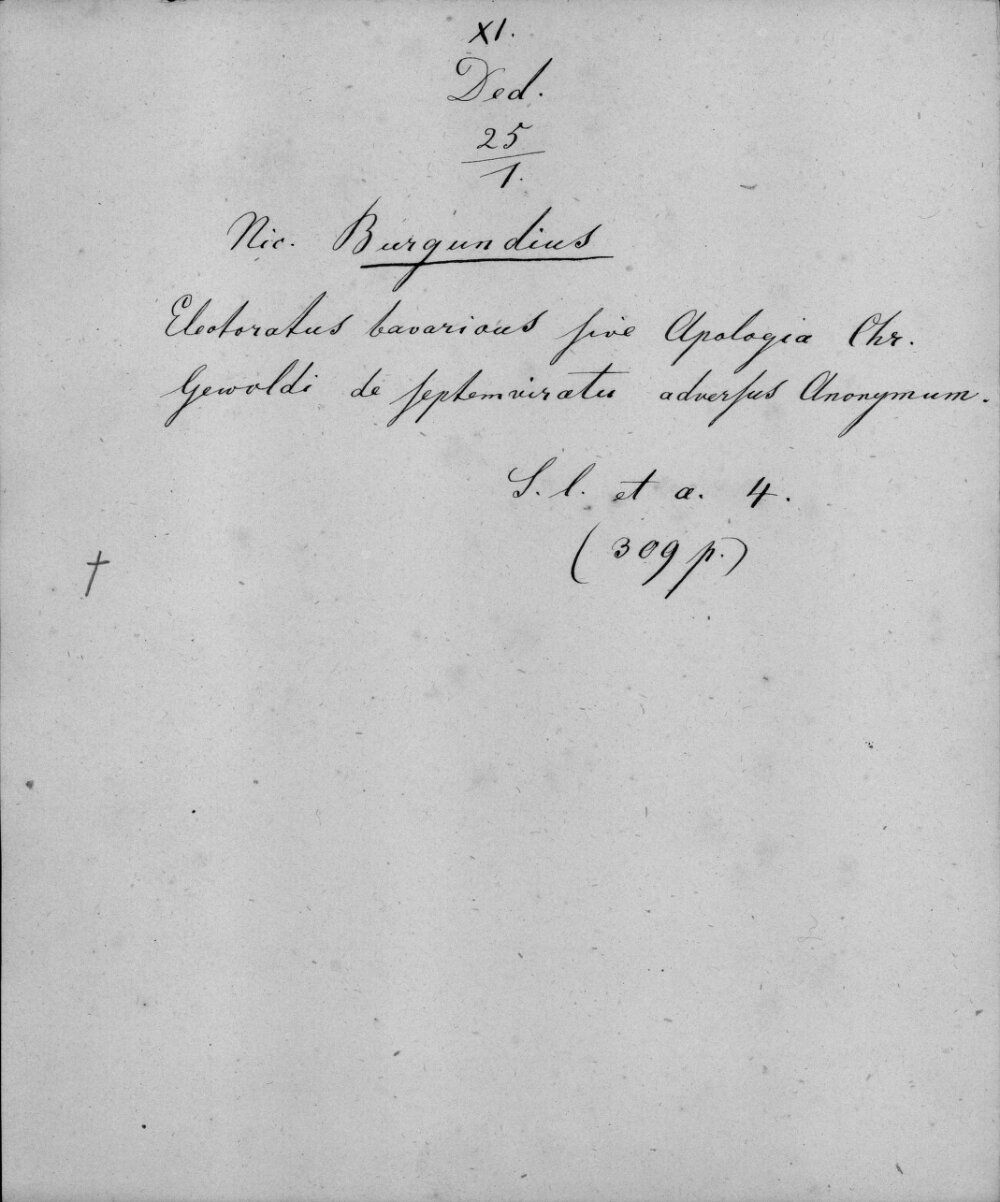 XI.
Ded.
25
1.
Nic. Burgundius
Electoratus bavaricus ſive Apologia Chr.
Gewoldi de ſeptemviratu adverſus Anonymum.
S. l. et a. 4.
(309 p.)
†